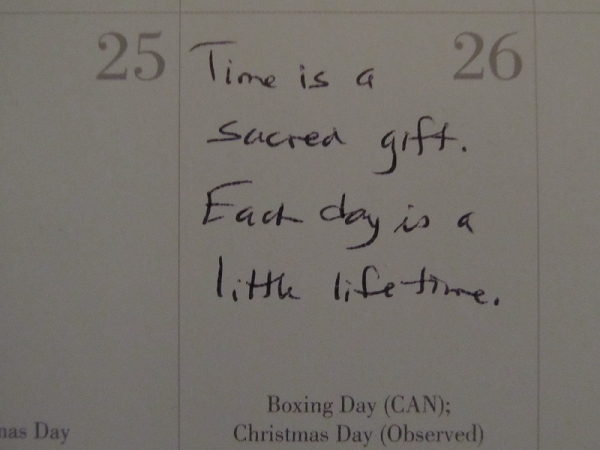 25
26
Time is a
sacred gift.
Each day is a
little lifetime.
Boxing Day (CAN);
Christmas Day (Observed)
mas Day